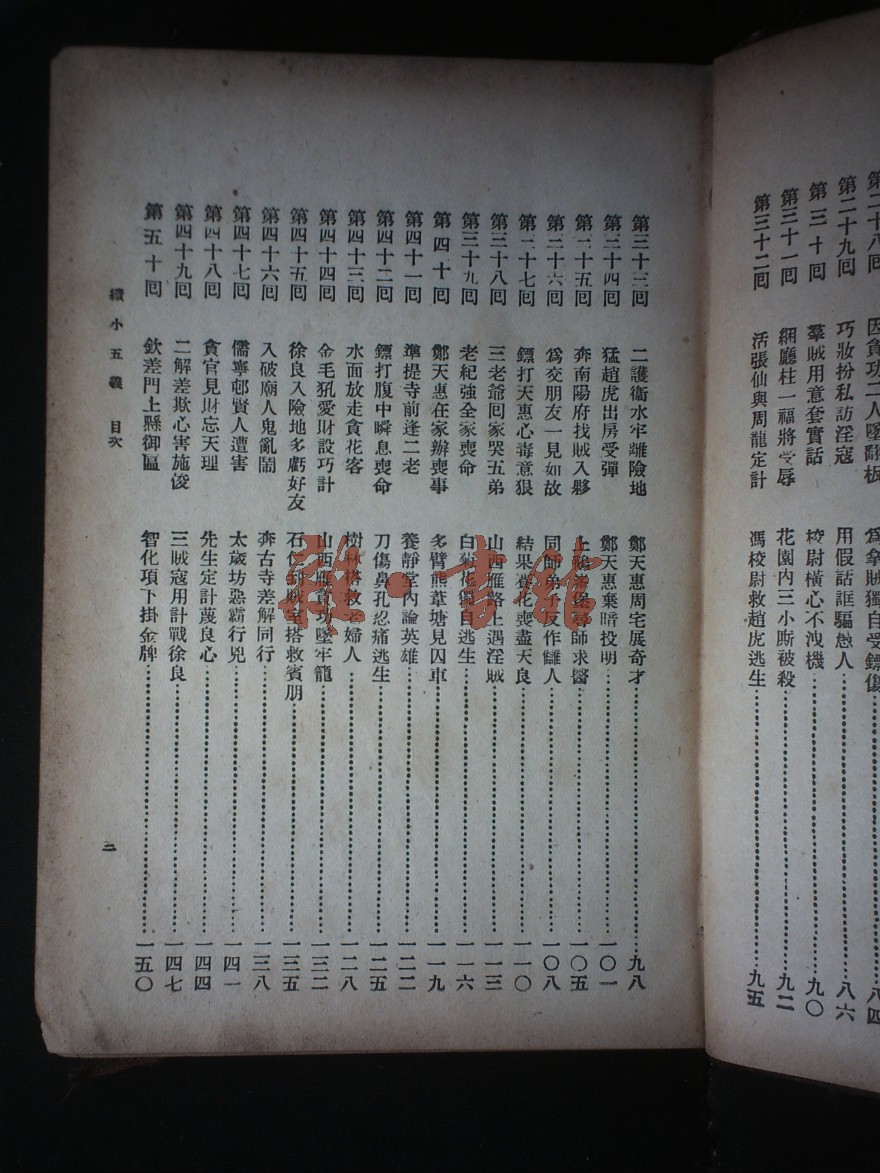 第二十八回 因貪功二人墜翻板 爲拿賊獨自受鏢傷 八四
第二十九回 巧妝扮私訪淫寇 用假話誆騙愚人 八六
第三十回 羣賊用意套實話 校尉橫心不洩機 九〇
第三十一回 網廳柱一福將受辱 花園內三小廝被殺 九二
第三十二回 活張仙與周龍定計 馮校尉救趙虎逃生 九五
第三十三回 二護衛水牢離險地 鄭天惠周宅展奇才 九八
第三十四回 猛趙虎出房受彈 鄭天惠棄暗投明 一〇一
第三十五回 奔南陽府找賊入夥 上鵝 尋師求醫 一〇五
第三十六回 爲交朋友一見如故 同師弟子反作讎人 一〇八
第三十七回 鏢打天惠心毒意狠 結果賽花喪盡天良 一一〇
第三十八回 三老爺回家哭五弟 山西雁路上遇淫賊 一一三
第三十九回 老紀強全家喪命 白菊花獨自逃生 一一六
第四十回 鄭天惠在家辦喪事 多臂熊葦塘見囚車 一一九
第四十一回 準提寺前逢二老 養靜堂內論英雄 一二二
第四十二回 鏢打腹中瞬息喪命 刀傷鼻孔忍痛逃生 一二五
第四十三回 水面放走貪花客 樹林搭救老婦人 一二八
第四十四回 金毛犼愛財設巧計 山西雁貪功墜牢籠 一三二
第四十五回 徐良入險地多虧好友 石仁到賊室搭救賓朋 一三五
第四十六回 入破廟人鬼亂鬧 奔古寺差解同行 一三八
第四十七回 儒寧邨賢人遭害 太歲坊惡霸行兇 一四一
第四十八回 貪官見財忘天理 先生定計蔑良心 一四四
第四十九回 二解差欺心害施俊 三賊寇用計戰徐良 一四七
第五十回 欽差門上懸御匾 智化項下掛金牌 一五〇
續小五義 目次
三
雅書館